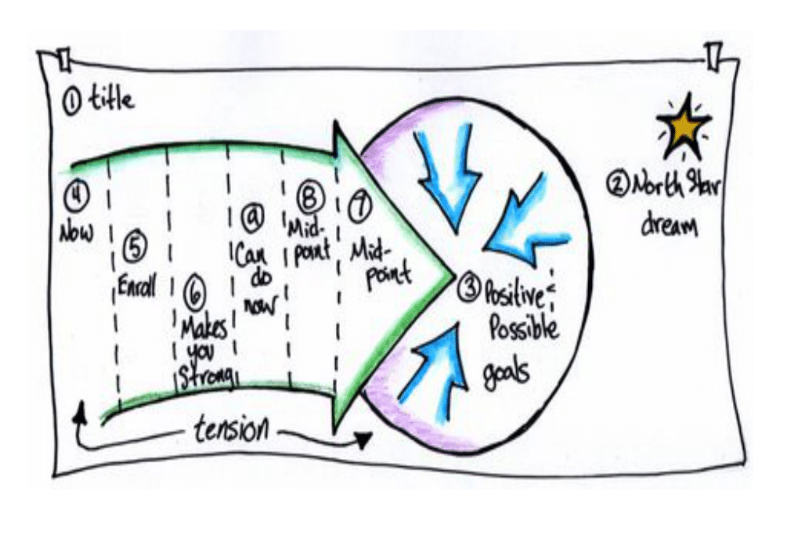 ① title
④
Now
⑤
Enroll
⑥
Makes
you
Strong
⑨
Can
do
now
⑧
Mid-
point
⑦
Mid-
point
③ Positive &
Possible
goals
② North Star
dream
tension